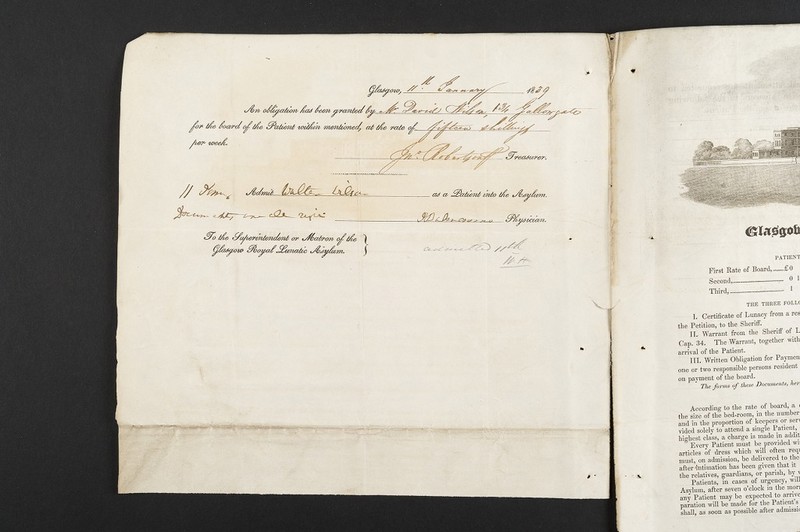 Glasgow, 11th January 1839
An obligation has been granted by Mr David Wilson, Gallowgate
for the board of the Patient within mentioned, at the rate of fifteen shillings
per week.
Jno Robertson Treasurer.
11 Admit Walter Wilson as a Patient into the Asylum.
Physician.
To the Superintendent or Matron of the
Glasgow Royal Lunatic Asylum.
admitted 11th
Glasgow
PATIENT
First Rate of Board, £0
Second, 0 1
Third, 1
THE THREE FOLLO
I. Certificate of Lunacy from a res
the Petition, to the Sheriff.
II. Warrant from the Sheriff of L
Cap. 34. The Warrant, together with
arrival of the Patient.
III. Written Obligation for Paymen
one or two responsible persons resident
on payment of the board.
The forms of these Documents, her
According to the rate of board, a
the size of the bed-room, in the number
and in the proportion of keepers or serv
vided solely to attend a single Patient,
highest class, a charge is made in addit
Every Patient must be provided wi
articles of dress which will often requ
must, on admission, be delivered to the
after intimation has been given that it
the relatives, guardians, or parish, by
Patients, in cases of urgency, will
Asylum, after seven o'clock in the morn
any Patient may be expected to arrive
paration will be made for the Patient's
shall, as soon as possible after admissi